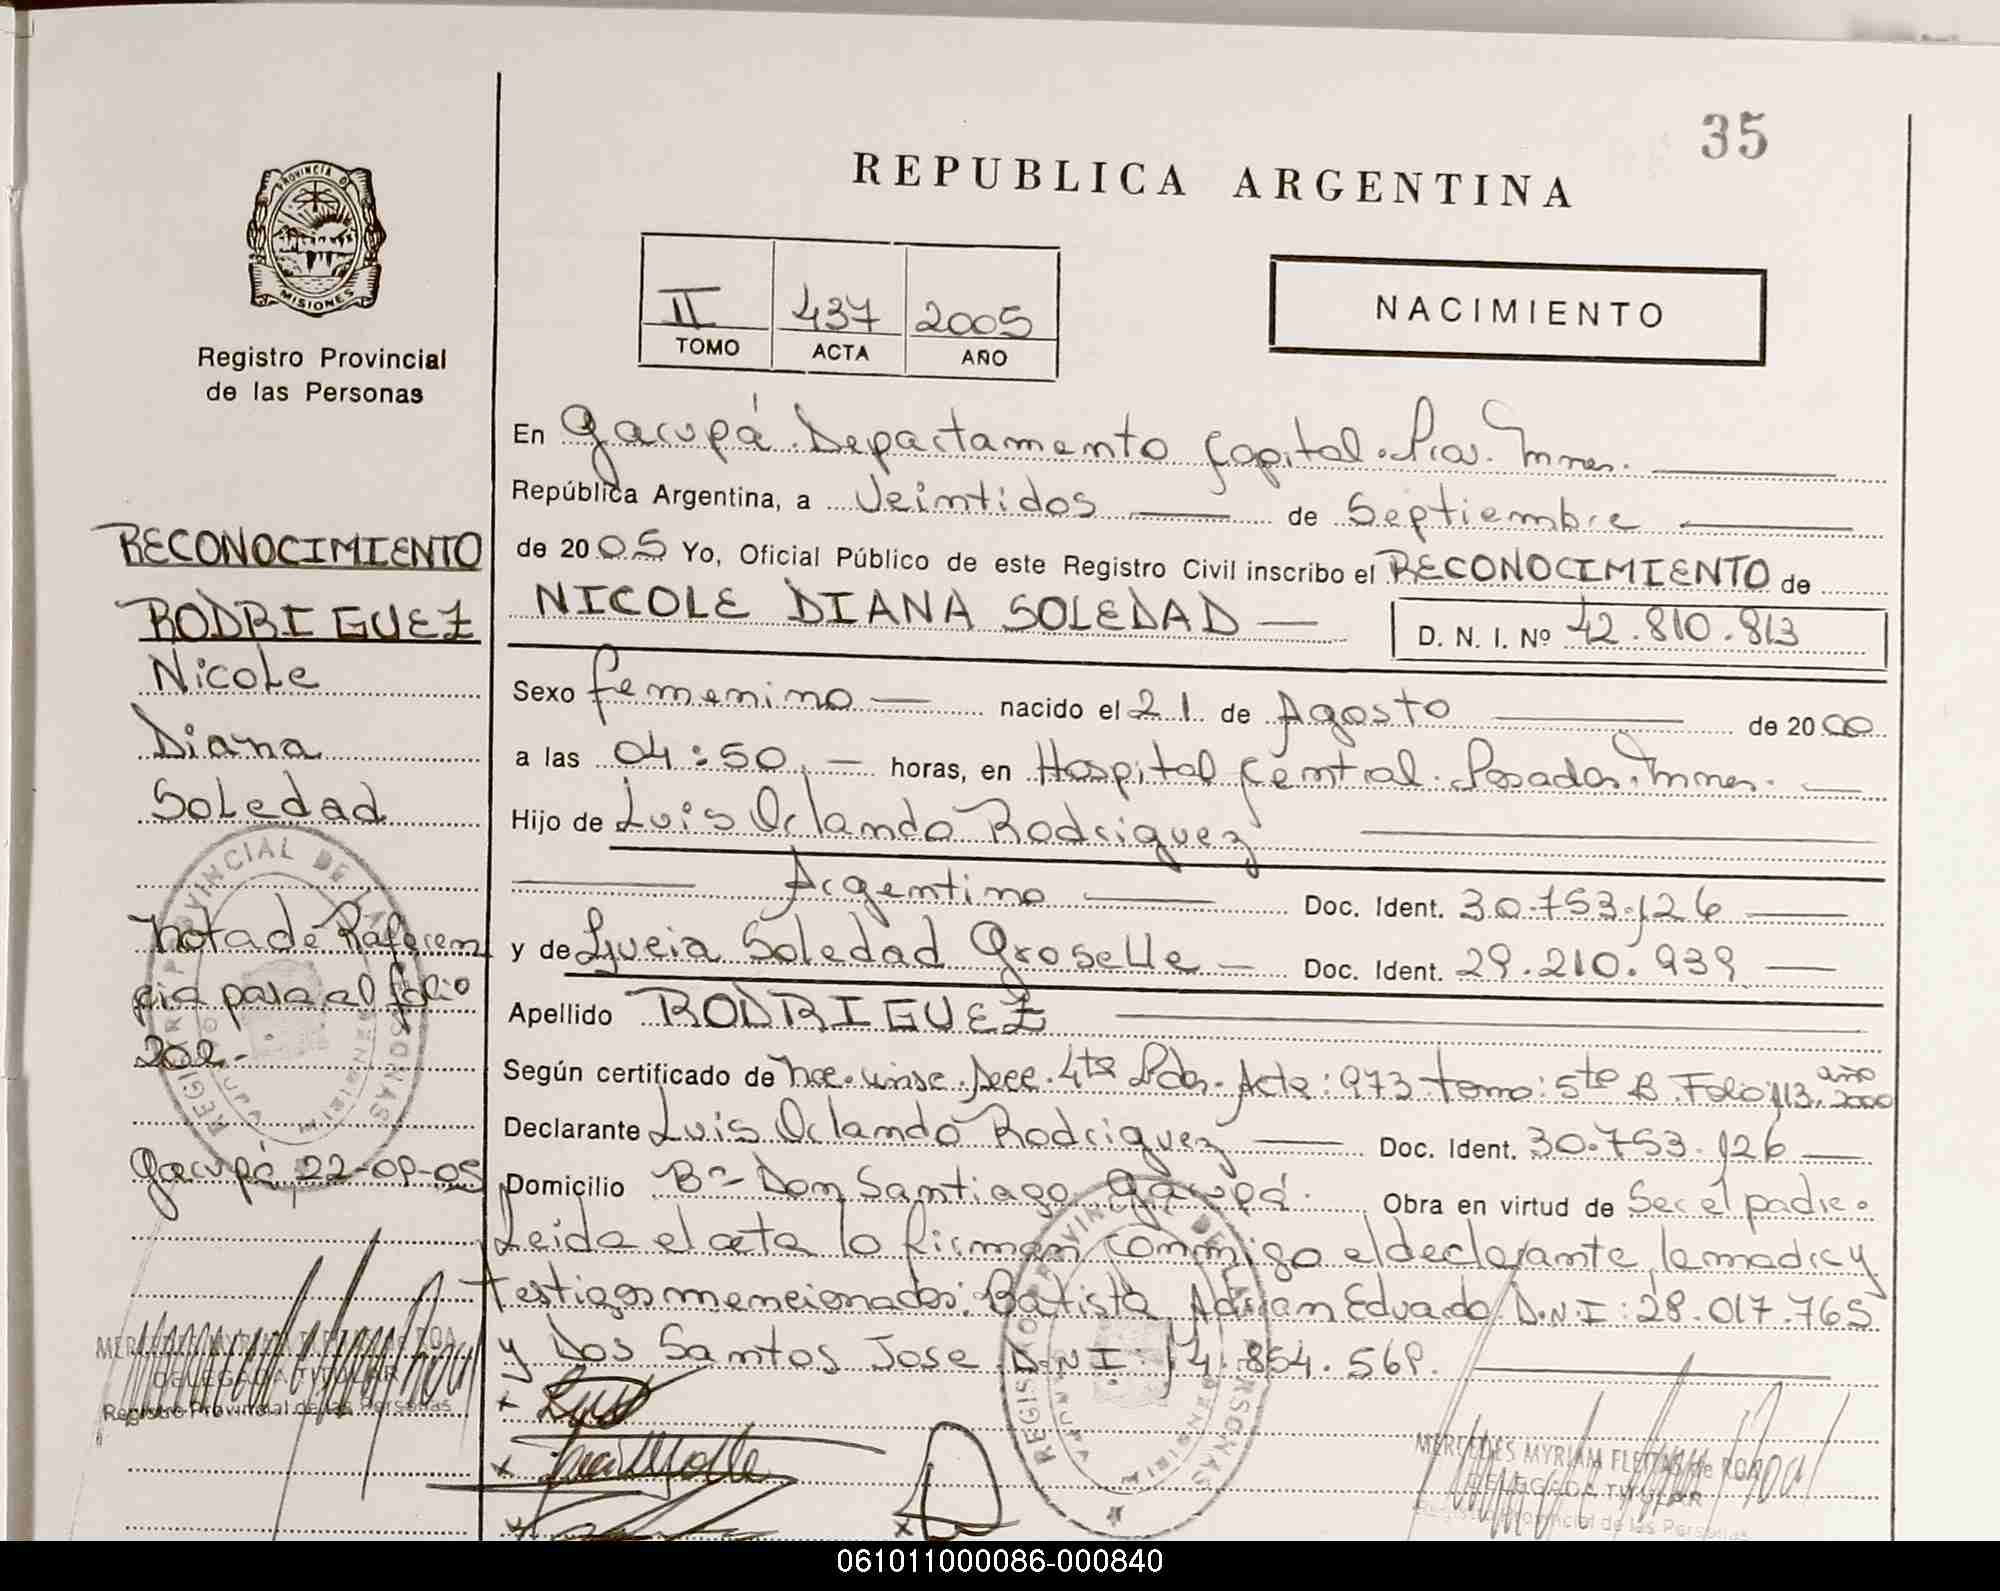 35
REPUBLICA ARGENTINA
PROVINCIA DE
MISIONES
Registro Provincial
de las Personas
II 437 2005
TOMO ACTA AÑO
NACIMIENTO
En Garupá. Departamento Capital. Prov. Mnes.
República Argentina, a Veintidos de Septiembre
de 2005 Yo, Oficial Público de este Registro Civil inscribo el RECONOCIMIENTO de
NICOLE DIANA SOLEDAD
D. N. I. Nº 42.810.813
Sexo femenino nacido el 21 de Agosto de 2000
a las 04:50 horas, en Hospital Central. Posadas. Mnes.
Hijo de Luis Orlando Rodriguez
Argentino Doc. Ident. 30.753.126
y de Lucia Soledad Groselle Doc. Ident. 29.210.939
Apellido RODRIGUEZ
Según certificado de Nac. Acta: 973 tomo: 5to B. Folio 113. año 2000
Declarante Luis Orlando Rodriguez Doc. Ident. 30.753.126
Domicilio Bº Don Santiago. Garupá. Obra en virtud de Ser el padre.
Leida el acta lo firman conmigo el declarante, la madre y
testigos mencionados: Batista Adrian Eduardo. D.N.I: 28.017.765
y Dos Santos Jose D.N.I. 14.854.568.
RECONOCIMIENTO
RODRIGUEZ
Nicole
Diana
Soledad
Nota de Referen
cia para el folio
202.-
Garupá, 22-09-05
REGISTRO PROVINCIAL DE LAS PERSONAS
MERCEDES MYRIAM FLEITAS de ROA
DELEGADA TITULAR
Registro Provincial de las Personas
REGISTRO PROVINCIAL DE LAS PERSONAS
MERCEDES MYRIAM FLEITAS de ROA
DELEGADA TITULAR
Registro Provincial de las Personas
061011000086-000840